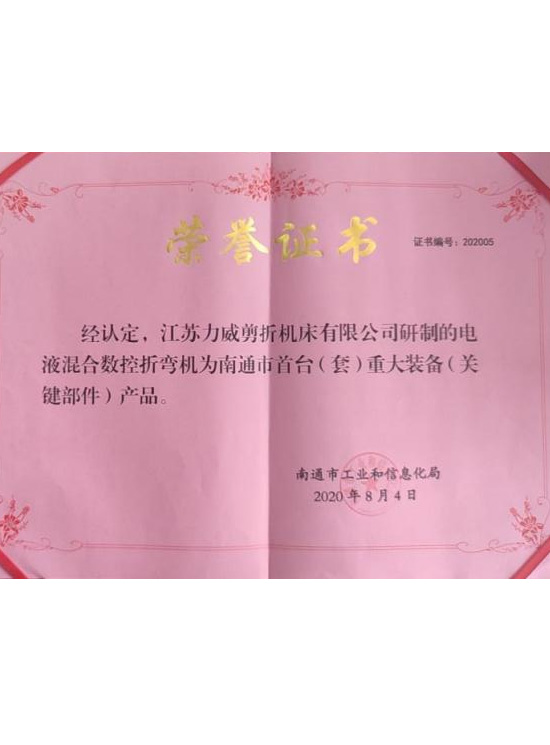 荣誉证书
证书编号：202005
经认定，江苏力威剪折机床有限公司研制的电
液混合数控折弯机为南通市首台（套）重大装备（关
键部件）产品。
南通市工业和信息化局
2020年8月4日